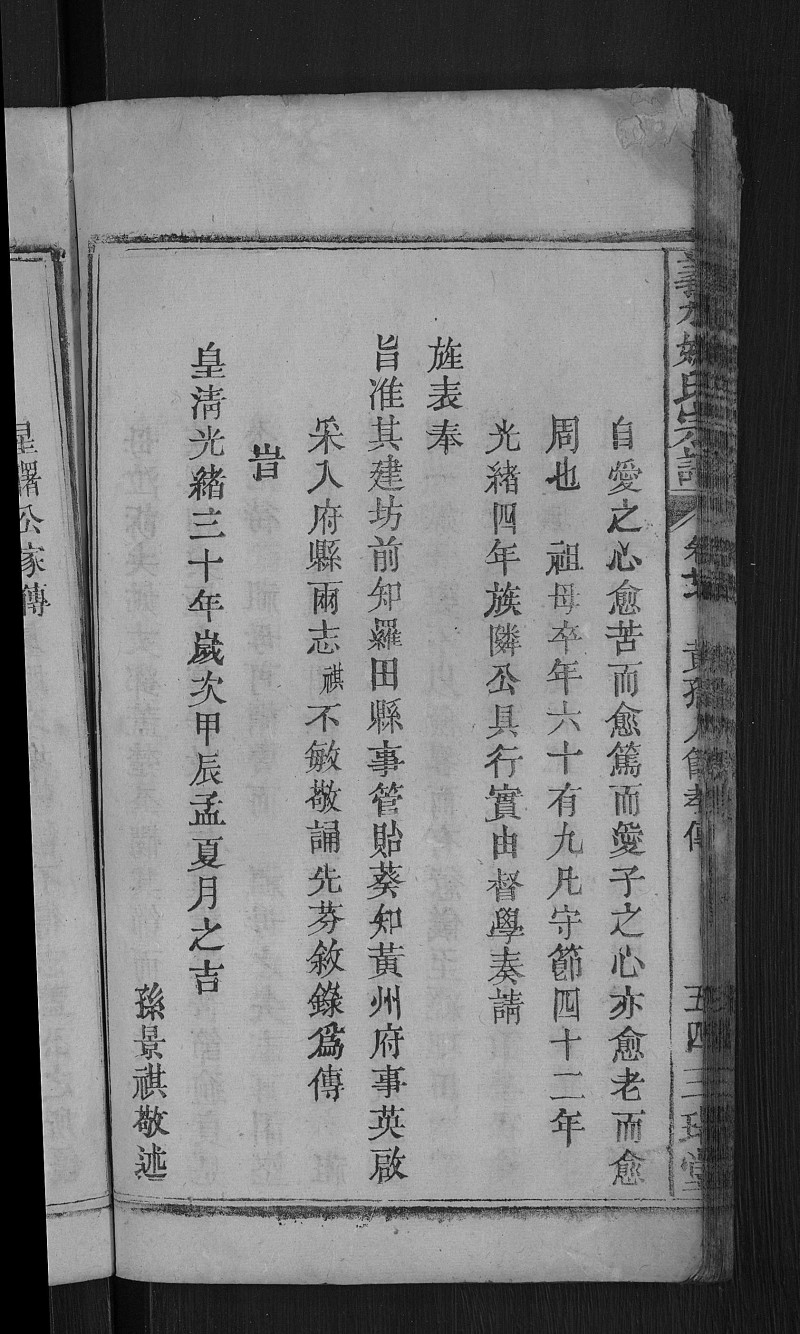 義水姚氏宗譜 卷廿 黃孺人節孝傳 五四 三瑞堂
自愛之心愈苦而愈篤而愛子之心亦愈老而愈
周也 祖母卒年六十有九凡守節四十二年
光緒四年族隣公具行實由督學奏請
旌表奉
旨准其建坊前知羅田縣事管貽葵知黃州府事英啟
采入府縣兩志祺不敏敬誦先芬敘錄為傳
旹
皇淸光緒三十年歲次甲辰孟夏月之吉
孫景祺敬述
公家傳